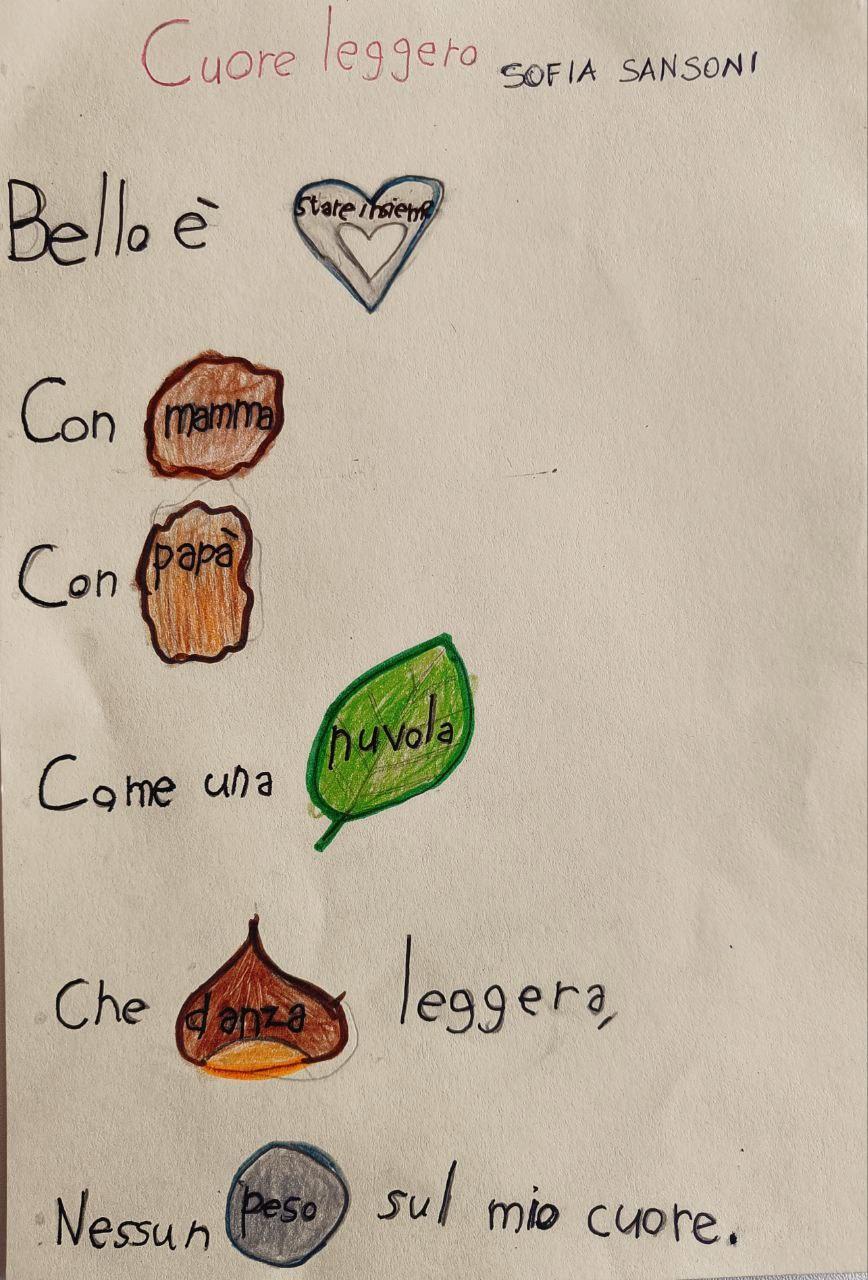 Cuore leggero SOFIA SANSONI
Bello è stare insieme
Con mamma
Con papà
Come una nuvola
Che danza leggera,
Nessun peso sul mio cuore.